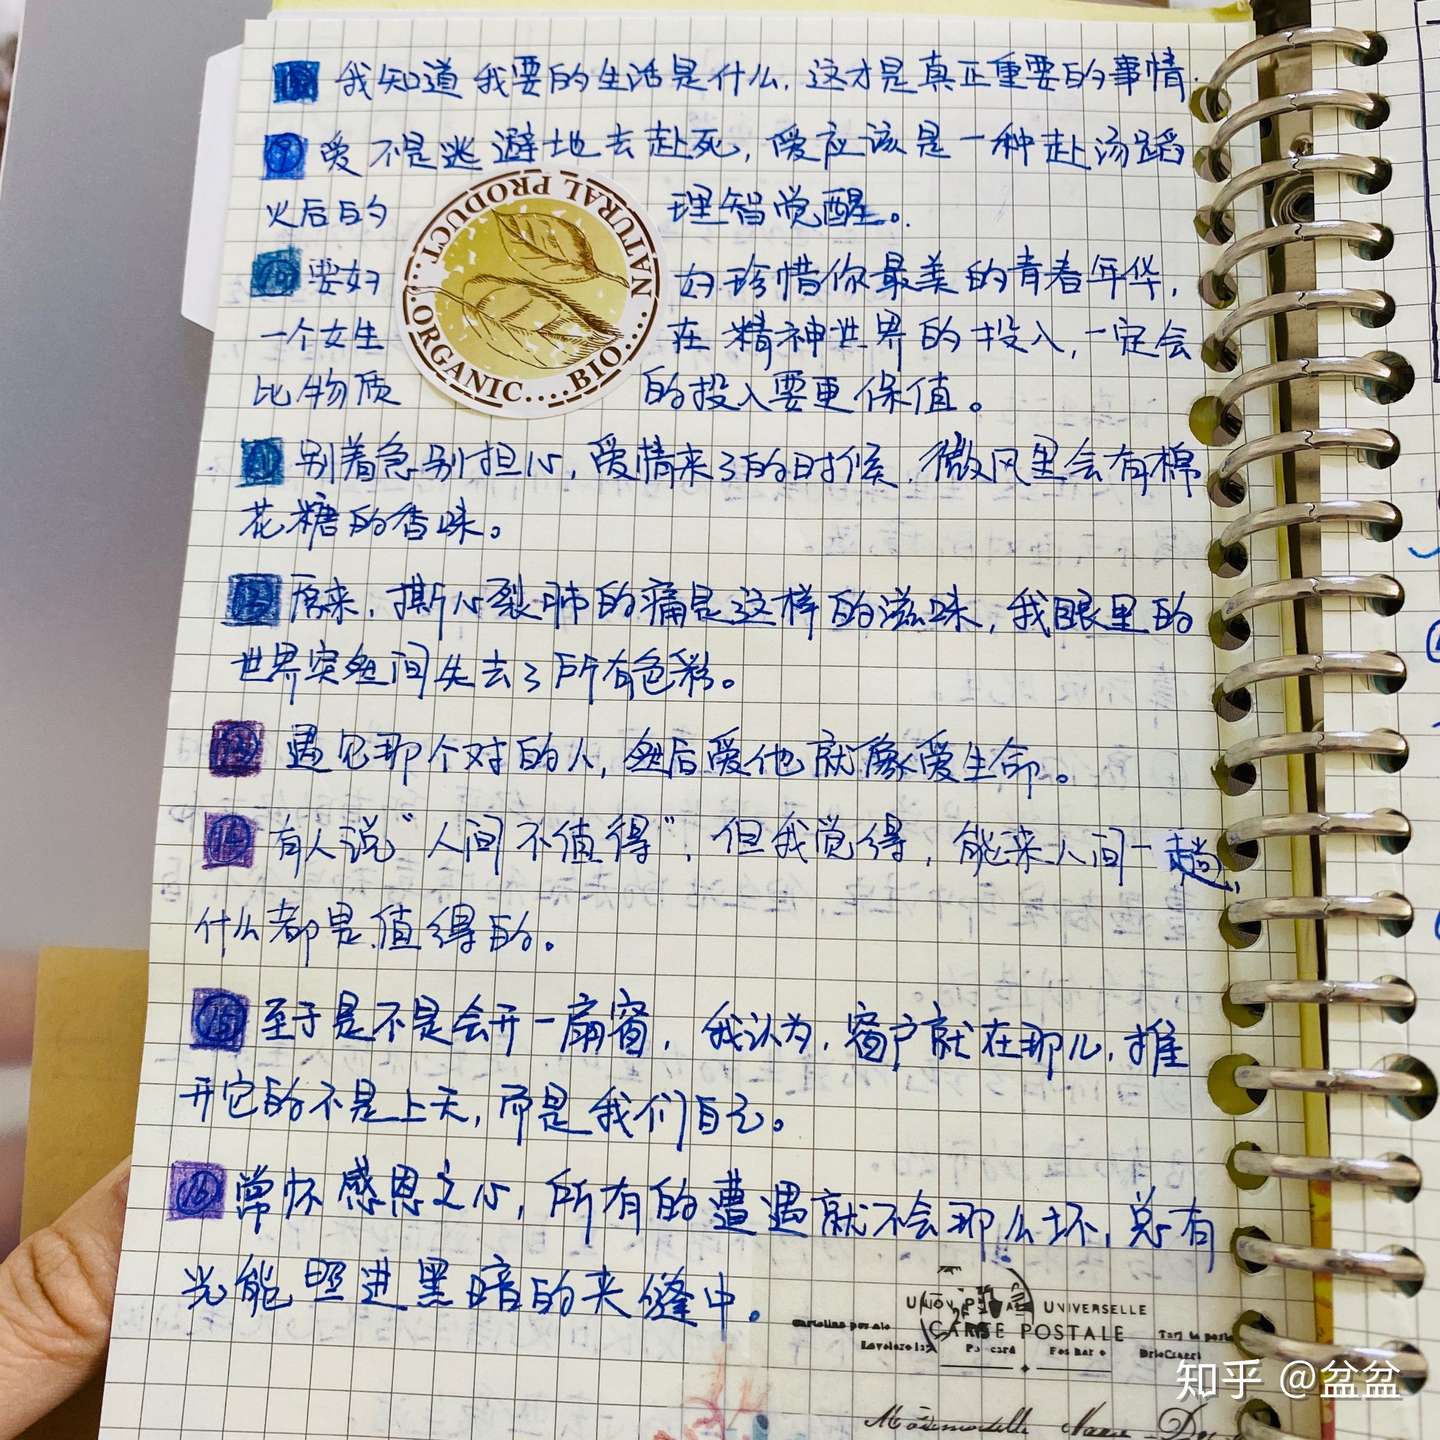 我知道我要的生活是什么,这才是真正重要的事情.
⑨ 爱不是逃避地去赴死,爱应该是一种赴汤蹈
火后的 理智觉醒。
⑩ 要好 好珍惜你最美的青春年华,
一个女生 在精神世界的投入,一定会
比物质 的投入要更保值。
⑪ 别着急别担心,爱情来了的时候,微风里会有棉
花糖的香味。
⑫ 原来,撕心裂肺的痛是这样的滋味,我眼里的
世界突然间失去了所有色彩。
⑬ 遇见那个对的人,然后爱他就像爱生命。
⑭ 有人说“人间不值得”,但我觉得,能来人间一趟,
什么都是值得的。
⑮ 至于是不是会开一扇窗,我认为,窗户就在那儿,推
开它的不是上天,而是我们自己。
⑯ 常怀感恩之心,所有的遭遇就不会那么坏,总有
光能照进黑暗的夹缝中。
NATURAL PRODUCT...ORGANIC....BIO....
UNIVERSELLE
CARTE POSTALE
知乎 @盆盆